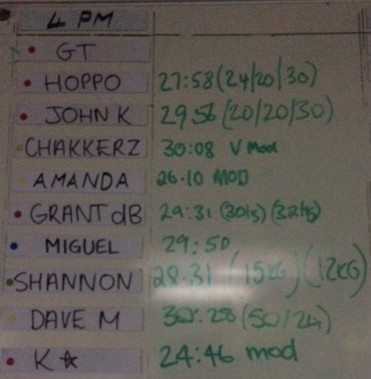 4 PM
GT
HOPPO 27:58 (24/20/30)
JOHN K 29:56 (20/20/30)
CHAKKERZ 30:08 V Mod
AMANDA 26.10 MOD
GRANT dB 29:31
MIGUEL 29:50
SHANNON 28.31 (15KG) (12KG)
DAVE M (50/24)
K☆ 24:46 mod